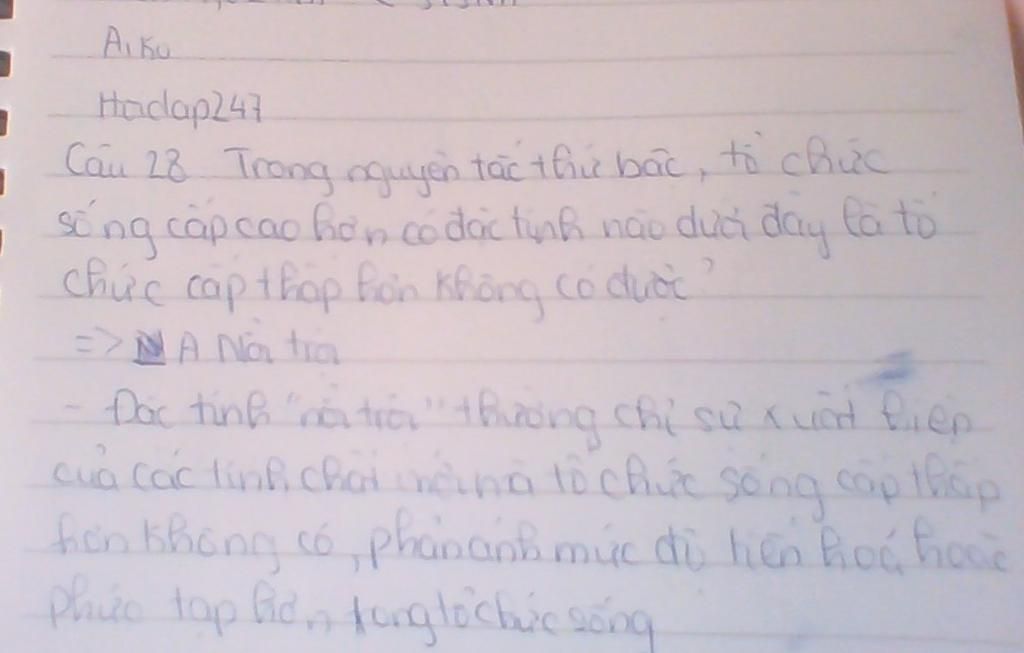 A, Ku
Hoidap247
Câu 28 Trong nguyên tắc thứ bậc, tổ chức
sống cấp cao hơn có đặc tính nào dưới đây là tổ
chức cấp thấp hơn không có được?
=> A Nổi trội
- Đặc tính "nổi trội" thường chỉ sự xuất hiện
của các tính chất mới mà tổ chức sống cấp thấp
hơn không có, phản ánh mức độ tiến hoá hoặc
phức tạp hơn trong tổ chức sống